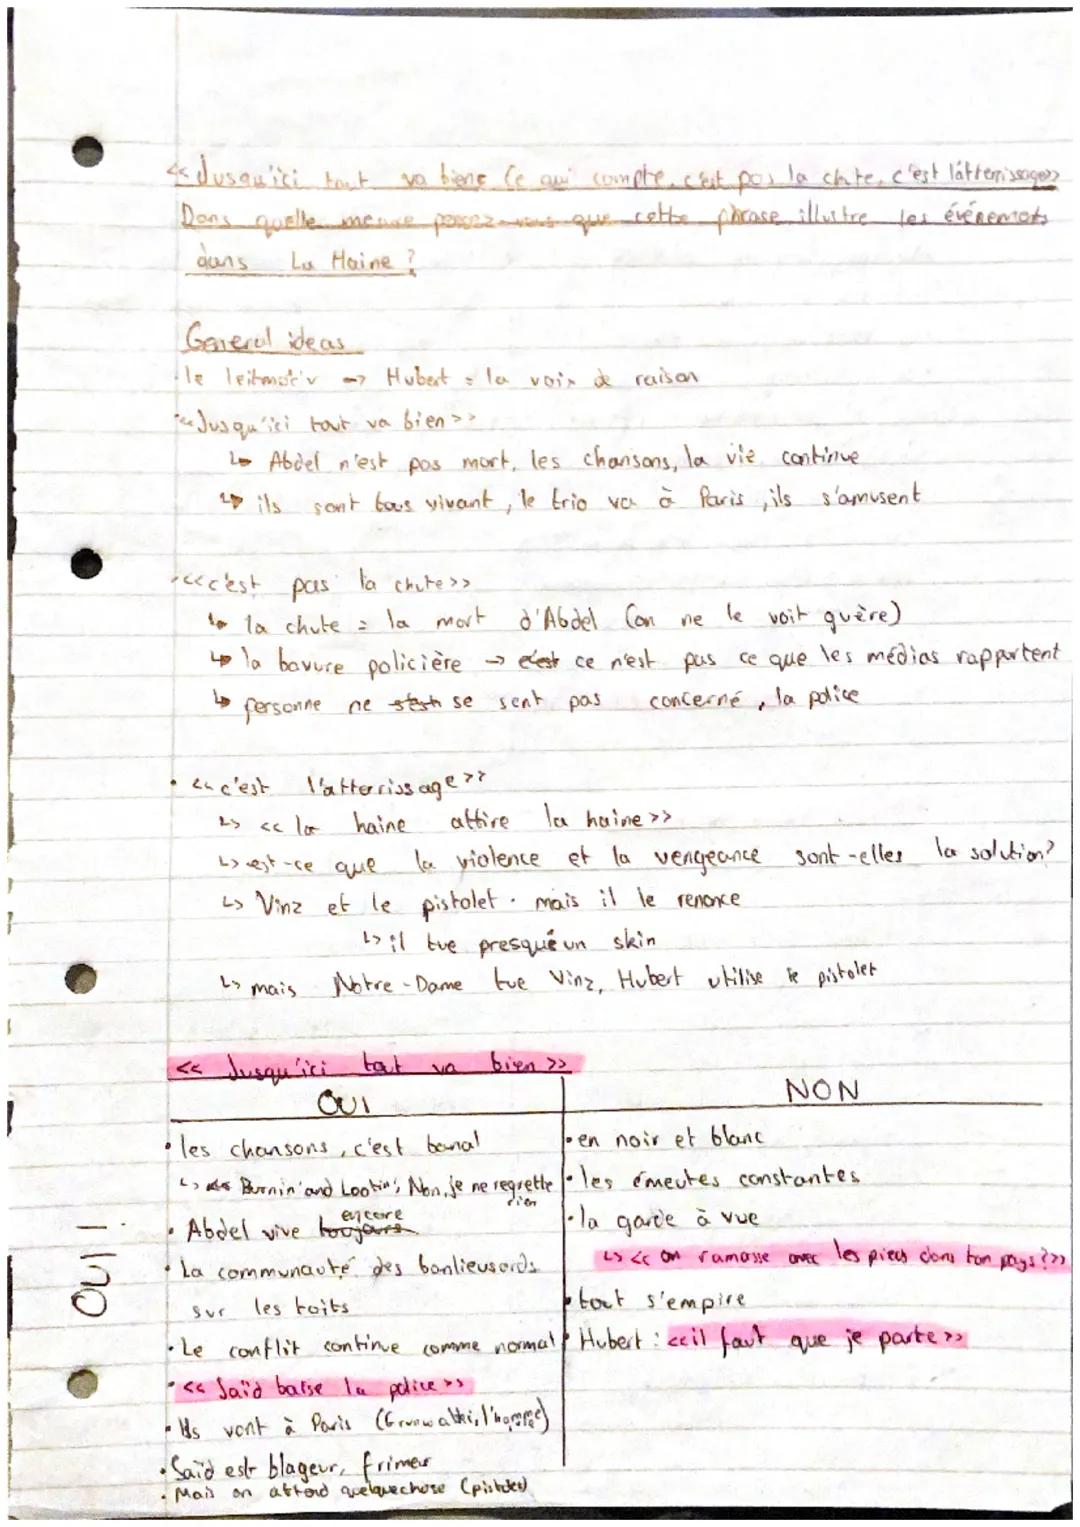 << Jusqu'ici tout va bien. Ce qui compte, c'est pas la chute, c'est l'atterrissage>>
Dans quelle mesure pensez-vous que cette phrase illustre les événements
dans La Haine ?
General ideas
• le leitmotiv → Hubert = la voix de raison
• <<Jusqu'ici tout va bien>>
↳ Abdel n'est pas mort, les chansons, la vie continue
↳ ils sont tous vivant, le trio va à Paris, ils s'amusent
• <<c'est pas la chute>>
↳ la chute = la mort d'Abdel (on ne le voit guère)
↳ la bavure policière → c'est ce n'est pas ce que les médias rapportent
↳ personne ne s'est se sent pas concerné, la police
• <<c'est l'atterrissage>>
↳ << la haine attire la haine>>
↳ est-ce que la violence et la vengeance sont-elles la solution?
↳ Vinz et le pistolet. mais il le renonce
↳ il tue presque un skin
↳ mais Notre-Dame tue Vinz, Hubert utilise le pistolet
<< Jusqu'ici tout va bien >>
OUI
• les chansons, c'est banal
↳ Burnin' and Lootin', Non, je ne regrette rien
• Abdel vive toujours encore
• La communauté des banlieusards
sur les toits
• Le conflit continue comme normal
• << Saïd baise la police >>
• Ils vont à Paris (Grunwalski, l'homme)
• Saïd est blageur, frimeur
• Mais on attend quelquechose (pistolet)
NON
• en noir et blanc
• les émeutes constantes
• la garde à vue
↳ << on ramasse avec les pieds dans ton pays?>>
• tout s'empire
• Hubert : <<il faut que je parte>>
OUI!